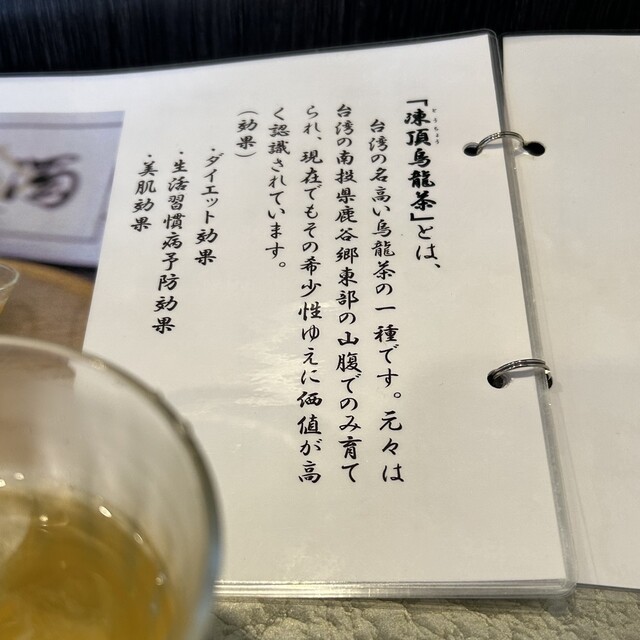 「凍頂烏龍茶」とは、
とうちょう
台湾の名高い烏龍茶の一種です。元々は
台湾の南投県鹿谷郷東部の山腹でのみ育て
られ、現在でもその希少性ゆえに価値が高
く認識されています。
(効果)
・ダイエット効果
・生活習慣病予防効果
・美肌効果